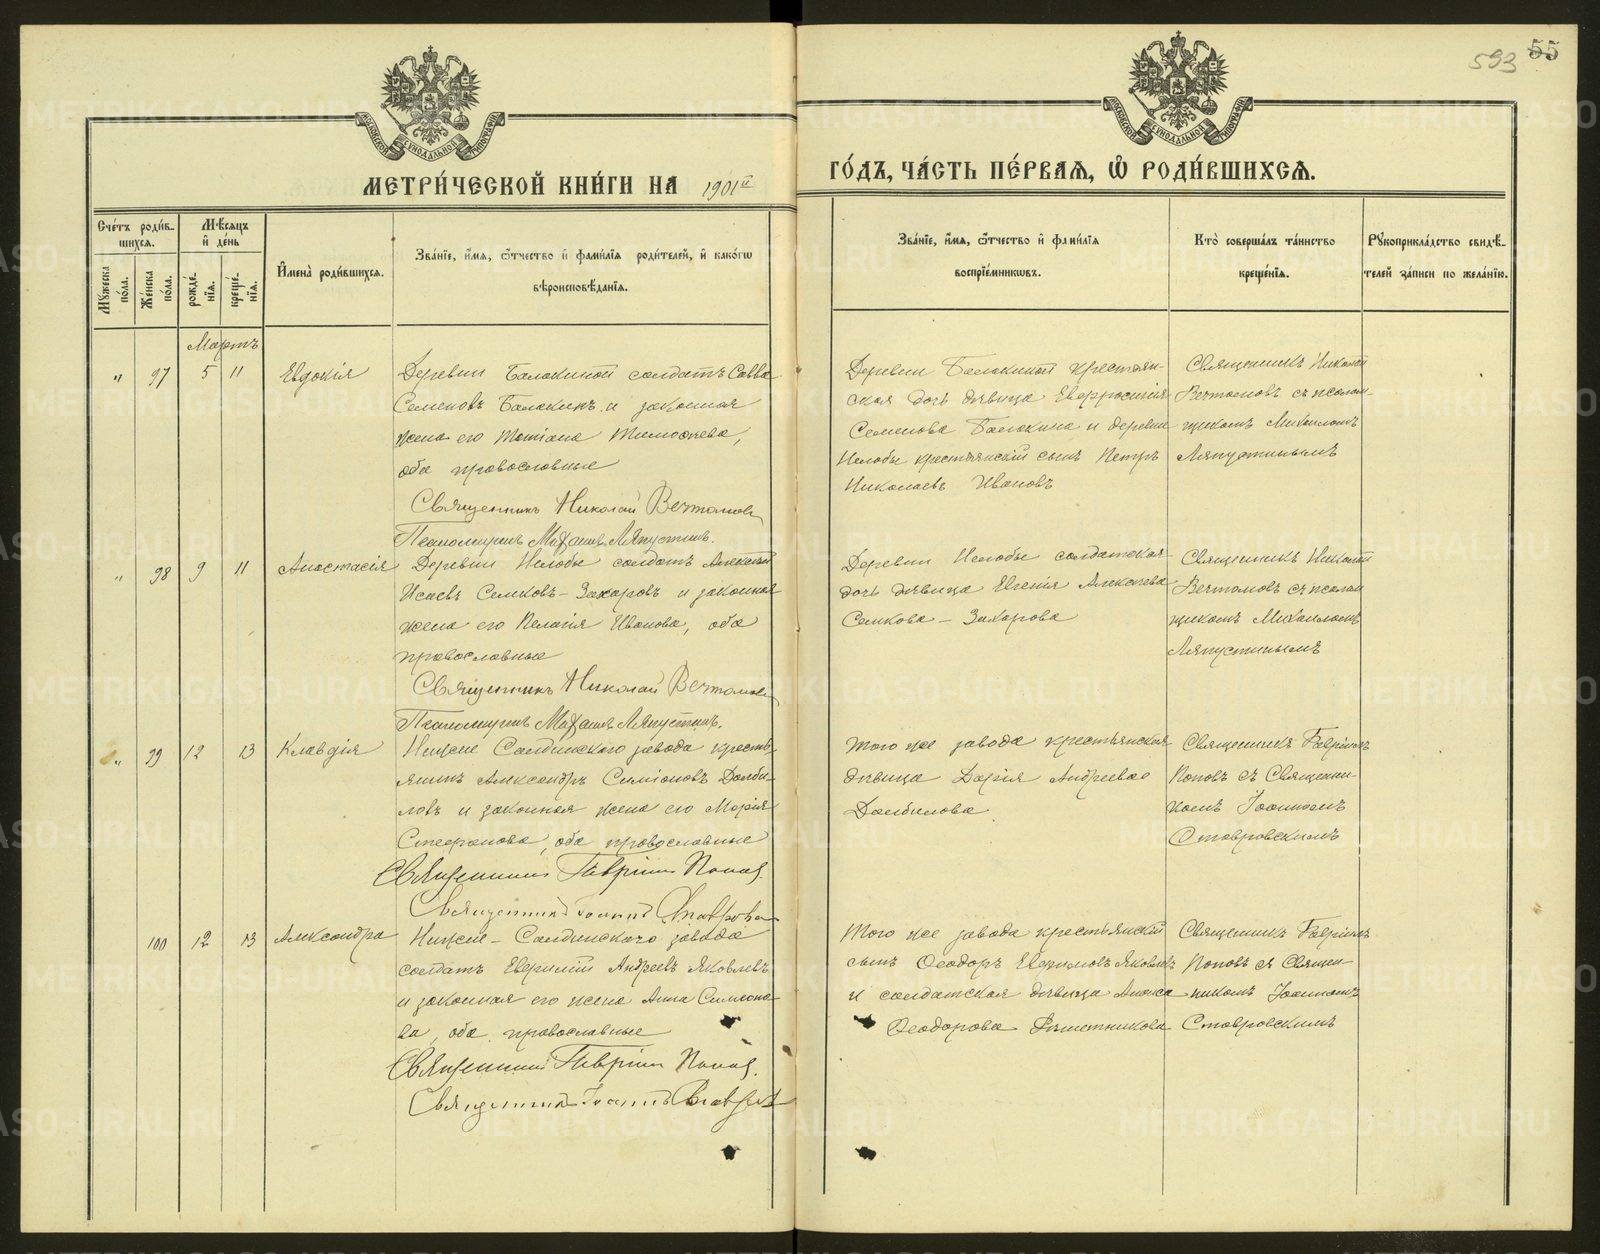 593 55
МОСКОВСКОЙ СѴНОДАЛЬНОЙ ТИПОГРАФІИ
МОСКОВСКОЙ СѴНОДАЛЬНОЙ ТИПОГРАФІИ
МЕТРИ́ЧЕСКОЙ КНИ́ГИ НА 1901й
ГО́ДЪ, ЧА́СТЬ ПЕ́РВАѦ, Ѡ҆ РОДИ́ВШИХСѦ.
Сче́тъ роди́в-
шихсѧ.
Мꙋ́жеска по́ла.
Же́нска по́ла.
Мѣ́сѧцъ
и҆ де́нь
рожде́-
нїѧ.
креще́-
нїѧ.
И҆мена̀ роди́вшихсѧ.
Зва́нїе, и҆́мѧ, ѻ҆́тчество и҆ фами́лїѧ роди́телей, и҆ како́гѡ
вѣроисповѣ́данїѧ.
Зва́нїе, и҆́мѧ, ѻ҆́тчество и҆ фами́лїѧ
воспрїе́мникѡвъ.
Кто̀ соверша́лъ та́инство
креще́нїѧ.
Рꙋкоприкла́дство свидѣ́-
телей за́писи по жела́нїю.
Мартъ
" 97 5 11 Евдокія
Деревни Балакиной солдатъ Савва
Семеновъ Балакинъ и законная
жена его Татіана Тимофеева,
оба православные
Священникъ Николай Вечтомовъ
Псаломщикъ Михаилъ Ляпустинъ.
Деревни Балакиной крестьян-
ская дочь дѣвица Евфросинія
Семенова Балакина и деревни
Нелобы крестьянскій сынъ Петръ
Николаевъ Ивановъ
Священникъ Николай
Вечтомовъ съ псалом-
щикомъ Михаиломъ
Ляпустинымъ
" 98 9 11 Анастасія
Деревни Нелобы солдатъ Алексѣй
Исаевъ Семковъ-Захаровъ и законная
жена его Пелагія Иванова, оба
православные
Священникъ Николай Вечтомовъ
Псаломщикъ Михаилъ Ляпустинъ.
Деревни Нелобы солдатская
дочь дѣвица Евгенія Алексѣева
Семкова-Захарова
Священникъ Николай
Вечтомовъ съ псалом
щикомъ Михаиломъ
Ляпустинымъ
" 99 12 13 Клавдія
Нижне Салдинскаго завода кресть-
янинъ Александръ Симіоновъ Долби-
ловъ и законная жена его Марія
Стефанова, оба православные
Священникъ Гавріилъ Поповъ.
Священникъ Іоаннъ Ставровскій
Того же завода крестьянская
дѣвица Дарія Андреева
Долбилова
Священникъ Гавріилъ
Поповъ съ Священни-
комъ Іоанномъ
Ставровскимъ
100 12 13 Александра
Нижне-Салдинскаго завода
солдатъ Евфимій Андреевъ Яковлевъ
и законная его жена Анна Симеоно-
ва, оба православные
Священникъ Гавріилъ Поповъ.
Священникъ Іоаннъ Ставровскій
Того же завода крестьянскій
сынъ Ѳеодоръ Яковлевъ
и солдатская дѣвица
Ѳеодорова Рѣшетникова
Священникъ Гавріилъ
Поповъ съ Священ-
никомъ Іоанномъ
Ставровскимъ
METRIKI.GASO-URAL.RU